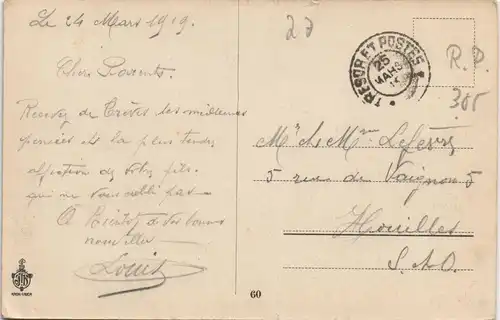 Le 24 Mars 1919.
Chers Parents.
Recevez de Trèves les meilleures
pensées et la plus tendre
affection de votre fils
qui ne vous oublie pas
A Bientôt de vos bonnes
nouvelles
Louis
60
23
TRESOR ET POSTES
25
MARS
R.P.
305
Mr et Mme Lefevre
5 rue du 5
Houilles
S. & O.